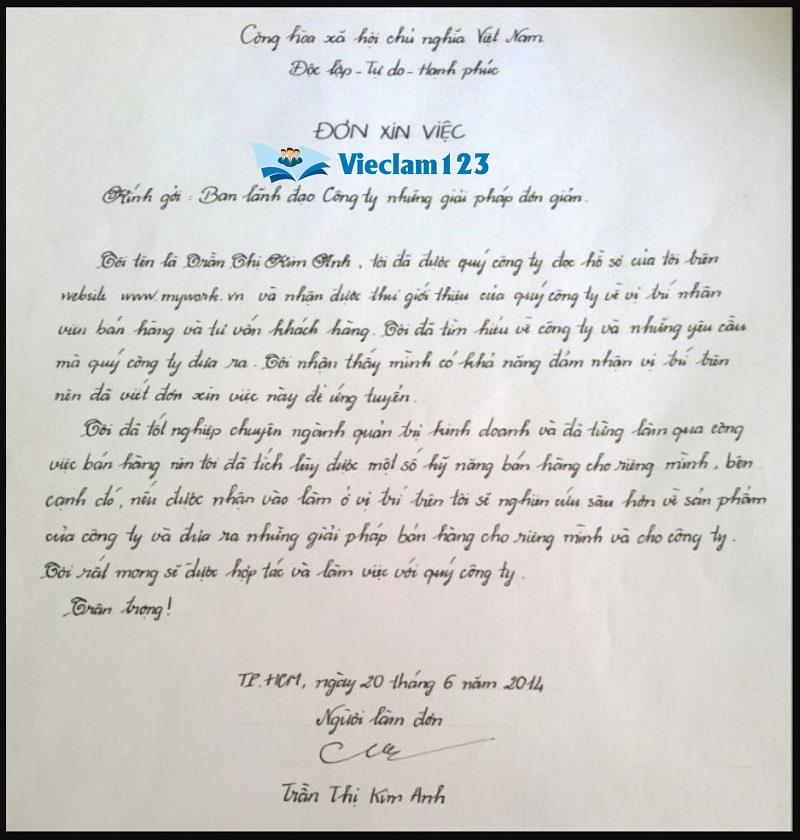 Cộng hòa xã hội chủ nghĩa Việt Nam
Độc lập - Tự do - Hạnh phúc
ĐƠN XIN VIỆC
Vieclam123
Kính gởi : Ban lãnh đạo Công ty những giải pháp đơn giản.
Tôi tên là Trần Thị Kim Anh, tôi đã được quý công ty đọc hồ sơ của tôi trên
website www.mywork.vn và nhận được thư giới thiệu của quý công ty về vị trí nhân
viên bán hàng và tư vấn khách hàng. Tôi đã tìm hiểu về công ty và những yêu cầu
mà quý công ty đưa ra. Tôi nhận thấy mình có khả năng đảm nhận vị trí trên
nên đã viết đơn xin việc này để ứng tuyển.
Tôi đã tốt nghiệp chuyên ngành quản trị kinh doanh và đã từng làm qua công
việc bán hàng nên tôi đã tích lũy được một số kỹ năng bán hàng cho riêng mình, bên
cạnh đó, nếu được nhận vào làm ở vị trí trên tôi sẽ nghiên cứu sâu hơn về sản phẩm
của công ty và đưa ra những giải pháp bán hàng cho riêng mình và cho công ty.
Tôi rất mong sẽ được hợp tác và làm việc với quý công ty.
Trân trọng!
TP.HCM, ngày 20 tháng 6 năm 2014
Người làm đơn
Trần Thị Kim Anh